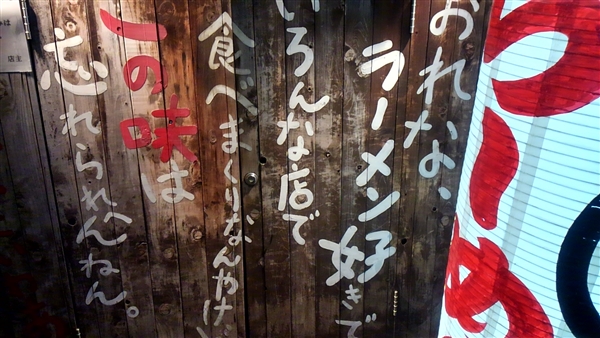 おれな、
ラーメン好きで
いろんな店で
食べまくりなんやけど
一の味は
忘れられへんねん。
らーめ
店主